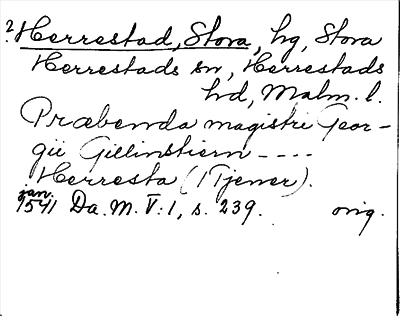 ? Herrestad, Stora, hg, Stora
Herrestads sn, Herrestads
hd, Malm. l.
Præbenda magistri Geor-
gii Gillinstiern ----
Herresta (1 Tjener).
jan.
1541 Da. M. V: 1, s. 239. orig.